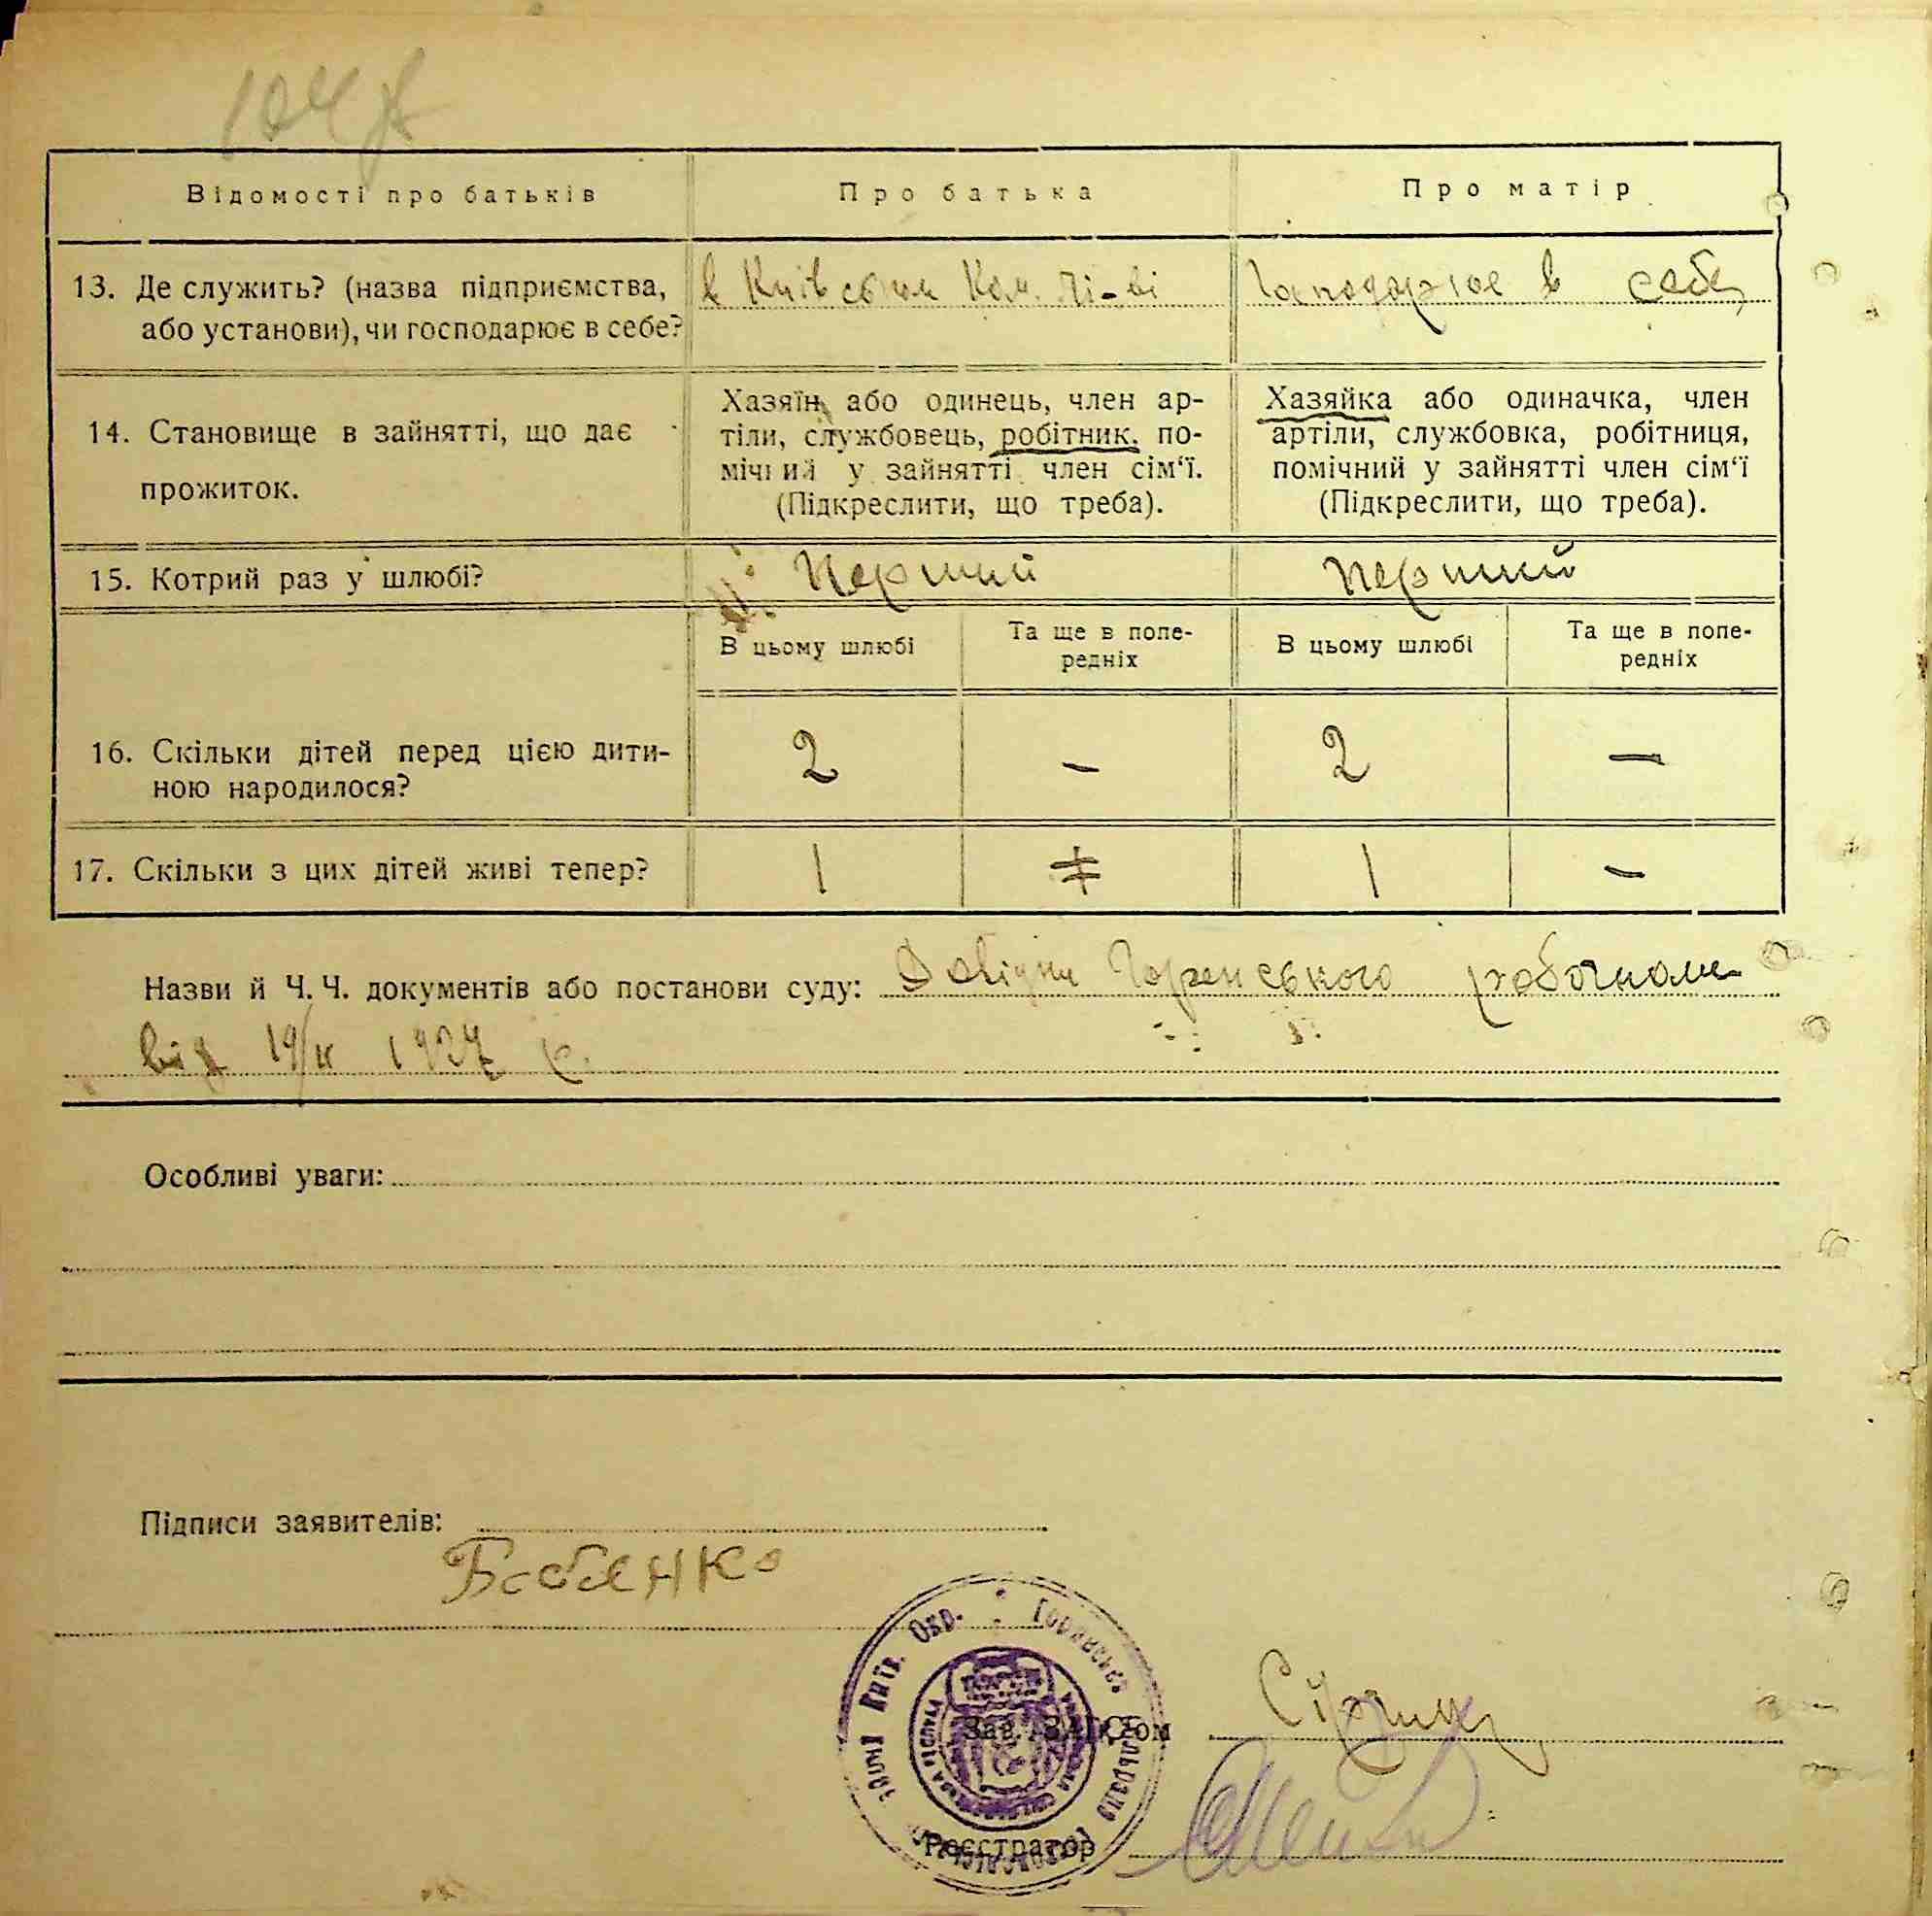 Відомості про батьків
Про батька
Про матір
13. Де служить? (назва підприємства,
або установи), чи господарює в себе?
в Київськом Ком.
господарює в себе
14. Становище в зайнятті, що дає
прожиток.
Хазяїн, або одинець, член ар-
тіли, службовець, робітник, по-
мічний у зайнятті член сім‘ї.
(Підкреслити, що треба).
Хазяйка або одиначка, член
артіли, службовка, робітниця,
помічний у зайнятті член сім‘ї
(Підкреслити, що треба).
15. Котрий раз у шлюбі?
Перший
перший
В цьому шлюбі
Та ще в попе-
редніх
В цьому шлюбі
Та ще в попе-
редніх
16. Скільки дітей перед цією дити-
ною народилося?
2
–
2
—
17. Скільки з цих дітей живі тепер?
1
1
–
Назви й Ч. Ч. документів або постанови суду: Довідка Горенського
від 19/ІІ 1927 р.
Особливі уваги:
Підписи заявителів:
Бабенко
Київ. Окр.
Зав. ЗАГС‘ом
Реєстратор